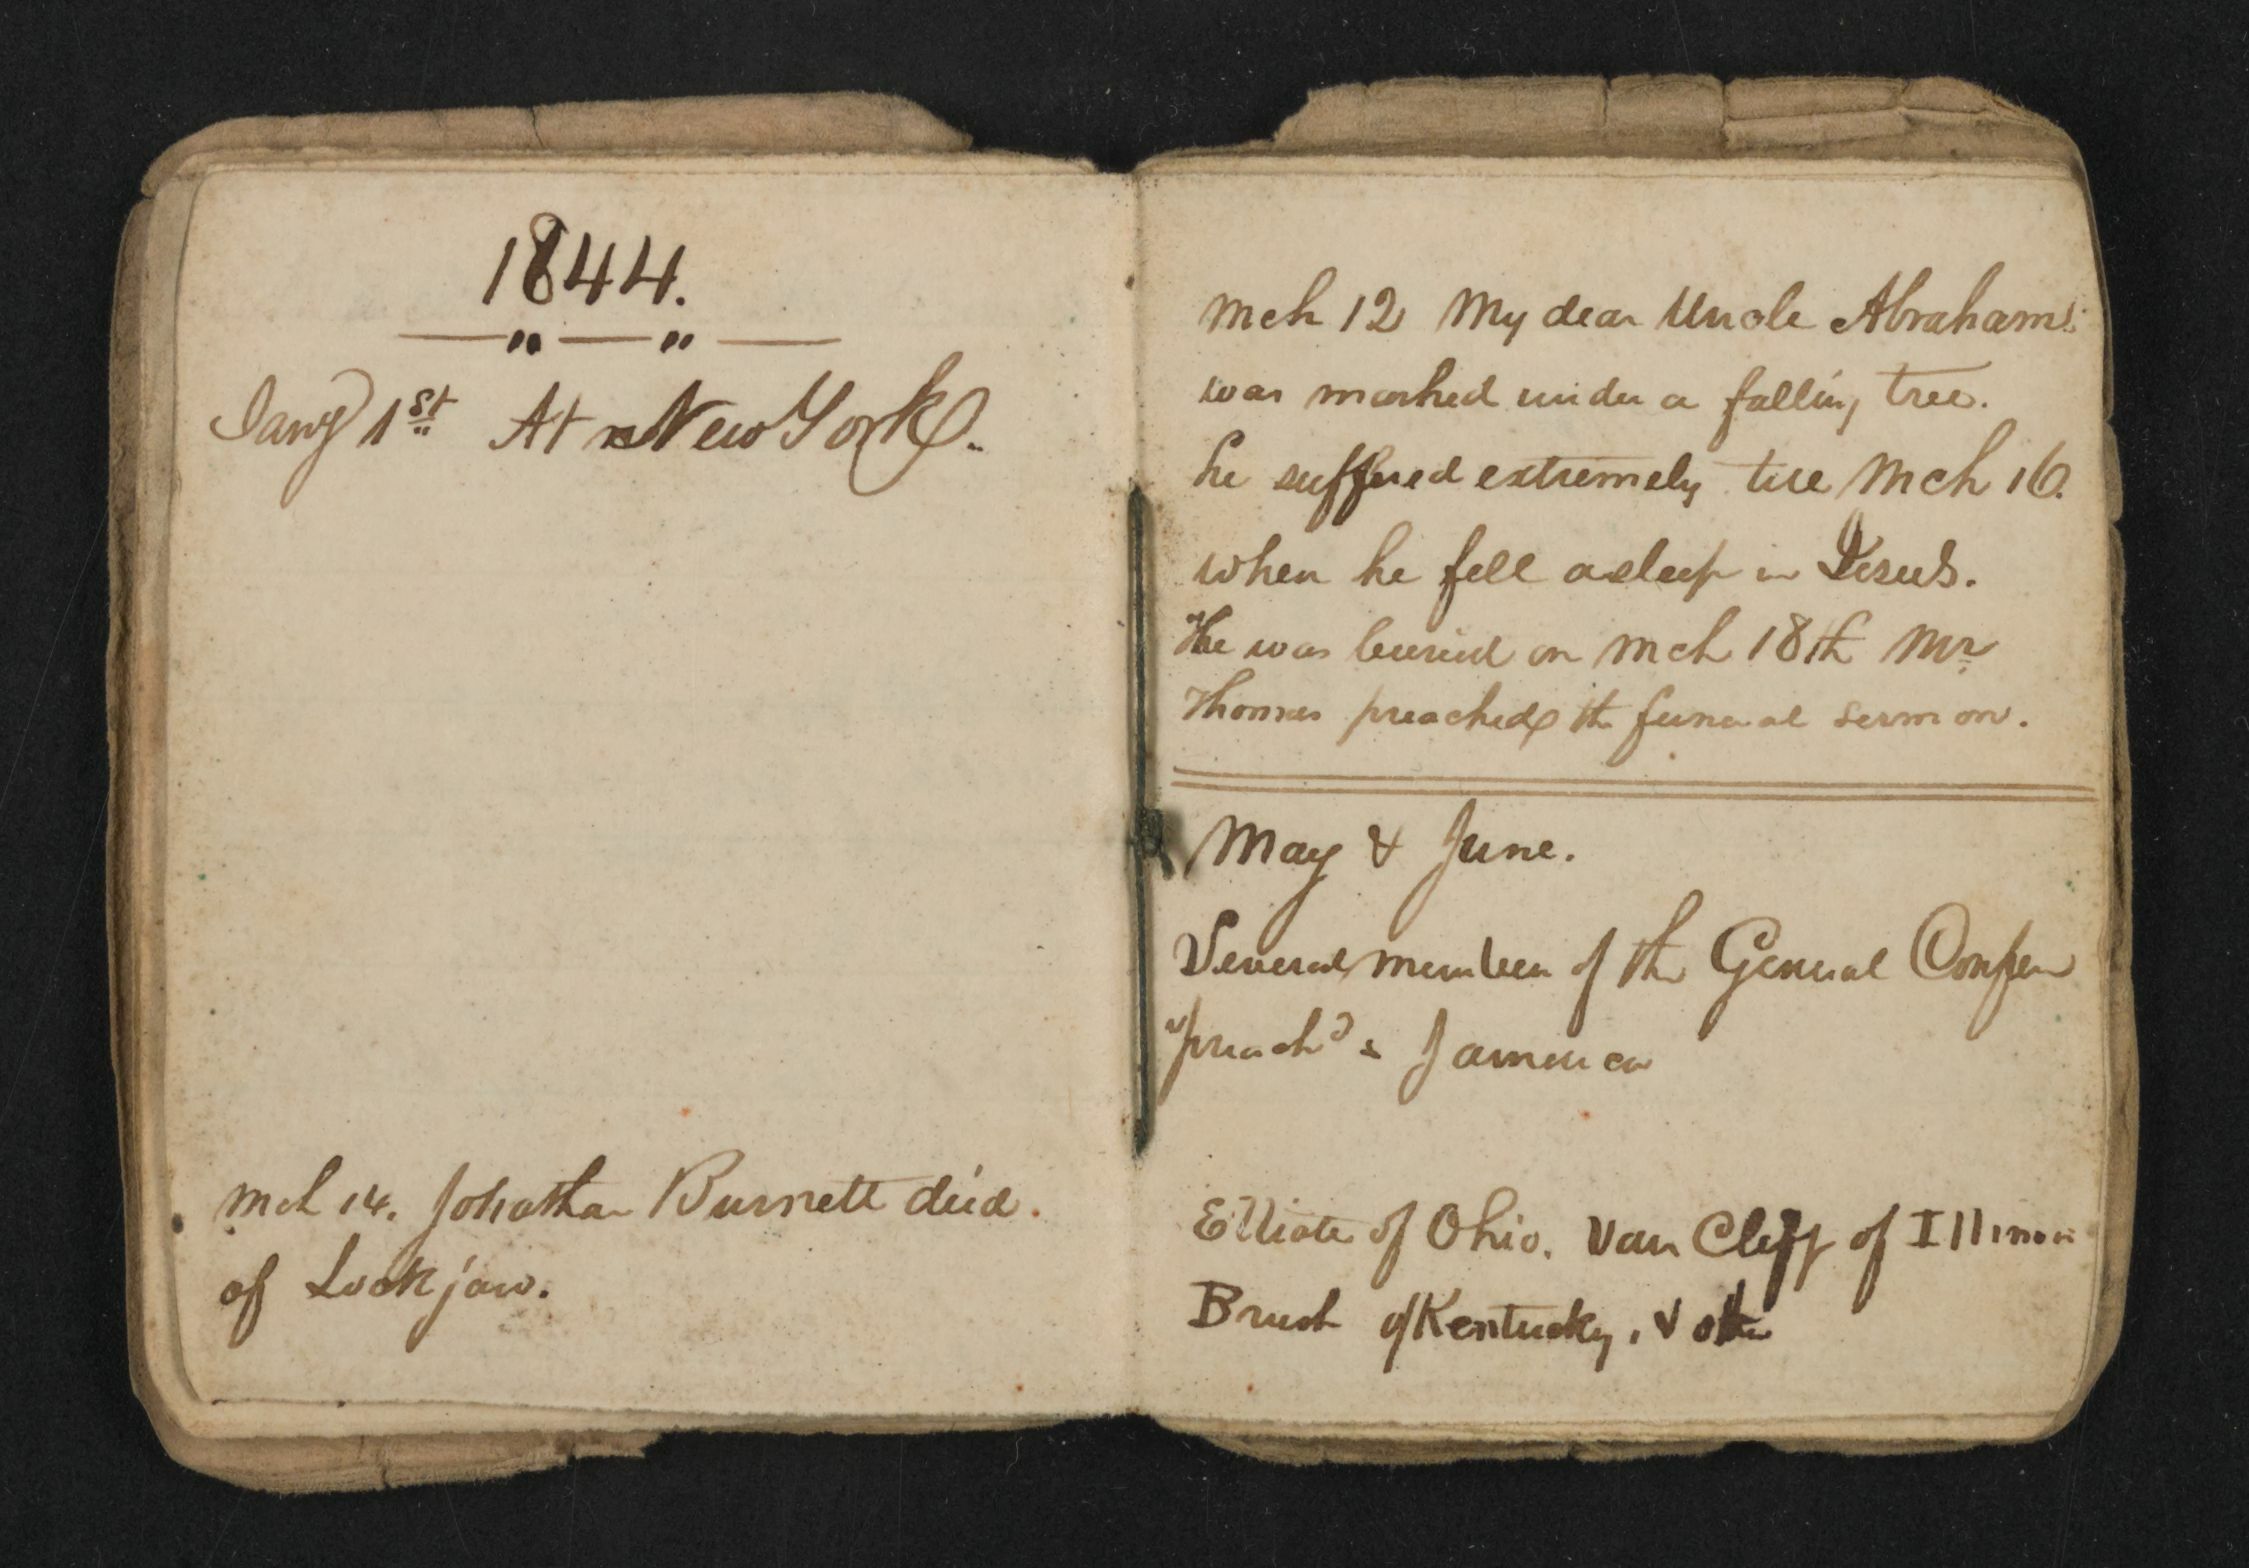 1844.
Jany 1st At New York.
Mch 14. Johathan Burnett died
of Lockjaw.
Mch 12 My dear Uncle Abraham
was mashed under a falling tree.
he suffered extremely till Mch 16.
when he fell asleep in Jesus.
He was buried on Mch 18th Mr
Thomas preached the funeral sermon.
May & June.
Several members of the General Confer
preachd Jamaica
Elliote of Ohio. Van Cleff of Illinois
Brush of Kentucky, & other